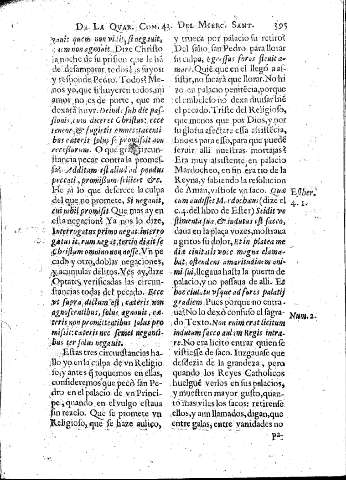 DE LA QUAR. COM. 43. DEL MIERC. SANT. 395
gavit quem non vidit, si negavit,
cum non agnovit. Dize Christo
la noche de su prision que le há
de desamparar todos: ls suyos:
y responde Pedro: Todos? Me-
nos yo, que si huyeren todos, mi
amor no es de porte, que me
dexará huyr. Deinde sub die pas-
sionis, cum diceret Christus: ecce
venerit, & fugietis omnes: cæteri-
bus ceteris solus se promisit non
recessurum. O que gran circuns-
tancia pecar contra la promes-
sa. Additum est aliud ad pondus
peccati, promissum fallere &c.
He aí lo que desmerece la culpa
del que no promete. Si negavit,
cui nihil promisit Que mas ay en
essa negacion? Ya nos lo dize,
Interrogatus primo negat, interro
gatus it.rum negat, tertio dicit se
Christum omnino non nosse. Vn pe
cado y otro, doblas negaciones,
y acumular delitos. Ves ay, dize
Optato, verificadas las circun-
stancias todas del pecado. Ecce
ut supra, dictum est, cæteris non
agnoscentibus, solus agnovit, cæ-
teris non promittentibus solus pro
misit: cæteris nec semel neganti-
bus ter solus negavit.
Estas tres circunstancias ha-
llo yo en la culpa de vn Religio
so, y antes q̃ toquemos en ellas,
consideremos que pecò san Pe-
dro en el palacio de vn Princi-
pe, quando en el vulgo estava
sin rezelo. Que se promete vn
Religioso, que se haze aulico,
y trueca por palacio su retiro?
Del salio san Pedro para llorar
su culpa, egressus foras flevit a-
marè. Quiẽ que en el llegó à af-
sistir, no acabarà que llorar. No hi
zo en palacio penitẽcia, porque
el embeleso no dexa discursar bie
el pecado. Triste del Religioso,
que menos que por Dios, y por
su gloria afectare essa assistẽcia,
huye para esso, para que puede
servir alli nuestras mortajas?
Era muy assistente en palacio
Mardocheo, en su trato en la
Reyna, y sabiendo la resolucion
de Aman, vistiose vn saco. Quæ
cum audisset Mardocheus (dize el
c. 4. del libro de Ester) Scidit ve
stimenta sua, & indutus est sacco,
dava en la plaça vozes, mostrava
a gritos su dolor, Et in platea me
diæ civitatis voce magna clama-
bat, ostendens amaritudinem ani-
mi sui, llegava hasta la puerta de
palacio, y no passava de alli. Et
hoc eiulatu usque ad fores palatij
gradiens. Pues porque no entra-
va? No lo dexò confuso el sagra-
do Texto. Non enim erat licitum
indutum sacco aulam Regis intra-
re. No era licito entrar quien se
vistiesse de saco. Iuzgavase que
desdezia de la grandeza, pero
quando los Reyes Catholicos
huelguẽ verlos en sus palacios,
y muestren mayor gusto, quan-
to mas viles los sacos: retirense
ellos, y aun llamados, digan, que
entre galas, entre vanidades no
pa-
Esther.
4. 1.
Num. 2.